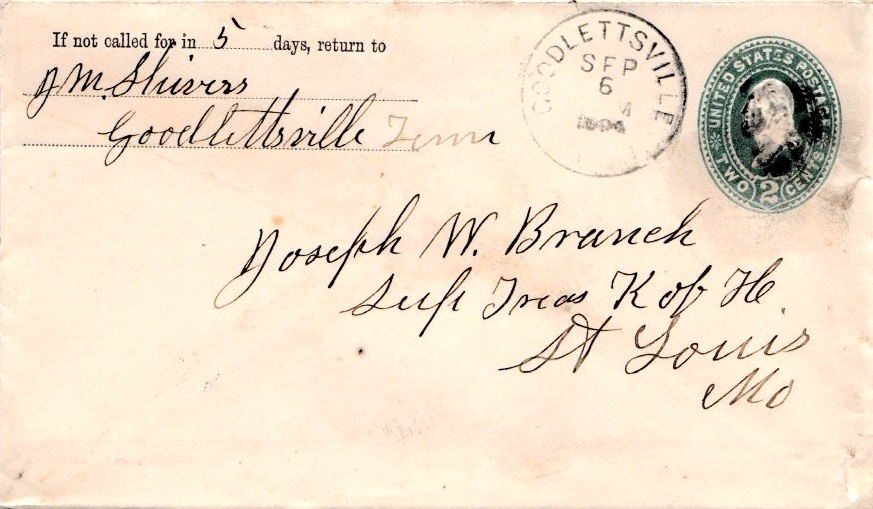 If not called for in 5 days, return to
J M. Shivers
Goodlettsville Tenn
GOODLETTSVILLE
SEP
6
M
1894
UNITED STATES POSTAGE
TWO 2 CENTS
Joseph W. Branch
Sup Treas K of H
St Louis
Mo